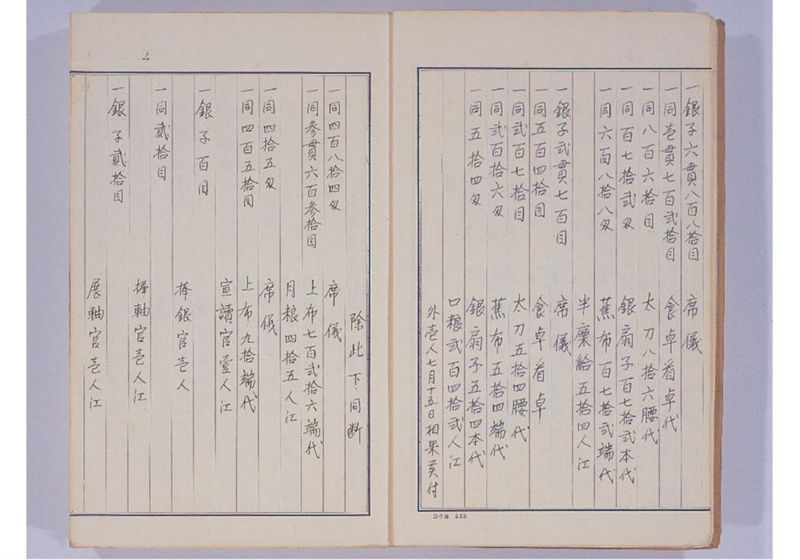 一銀子六貫八百八拾目 席儀
一同壱貫七百弐拾目 食卓看卓代
一同八百六拾目 太刀八拾六腰代
一同百七拾弐匁 銀扇子百七拾弐本代
一同六百八拾八匁 蕉布百七拾弐端代
半廩給五拾四人江
一銀子弐貫七百目 席儀
一同五百四拾目 食卓看卓
一同弐百七拾目 太刀五拾四腰代
一同弐百拾六匁 蕉布五拾四端代
一同五拾四匁 銀扇子五拾四本代
口粮弐百四拾弐人江
外壱人七月十五日相果
除此下同断
一同四百八拾四匁 席儀
一同参貫六百参拾目 上布七百弐拾六端代
月粮四拾五人江
一同四拾五匁 席儀
一同四百五拾目 上布九拾端代
宣讀官壹人江
一銀子百目
捧銀官壱人
一同貳拾目
捧軸官壱人江
一銀子貳拾目
展軸官壱人江